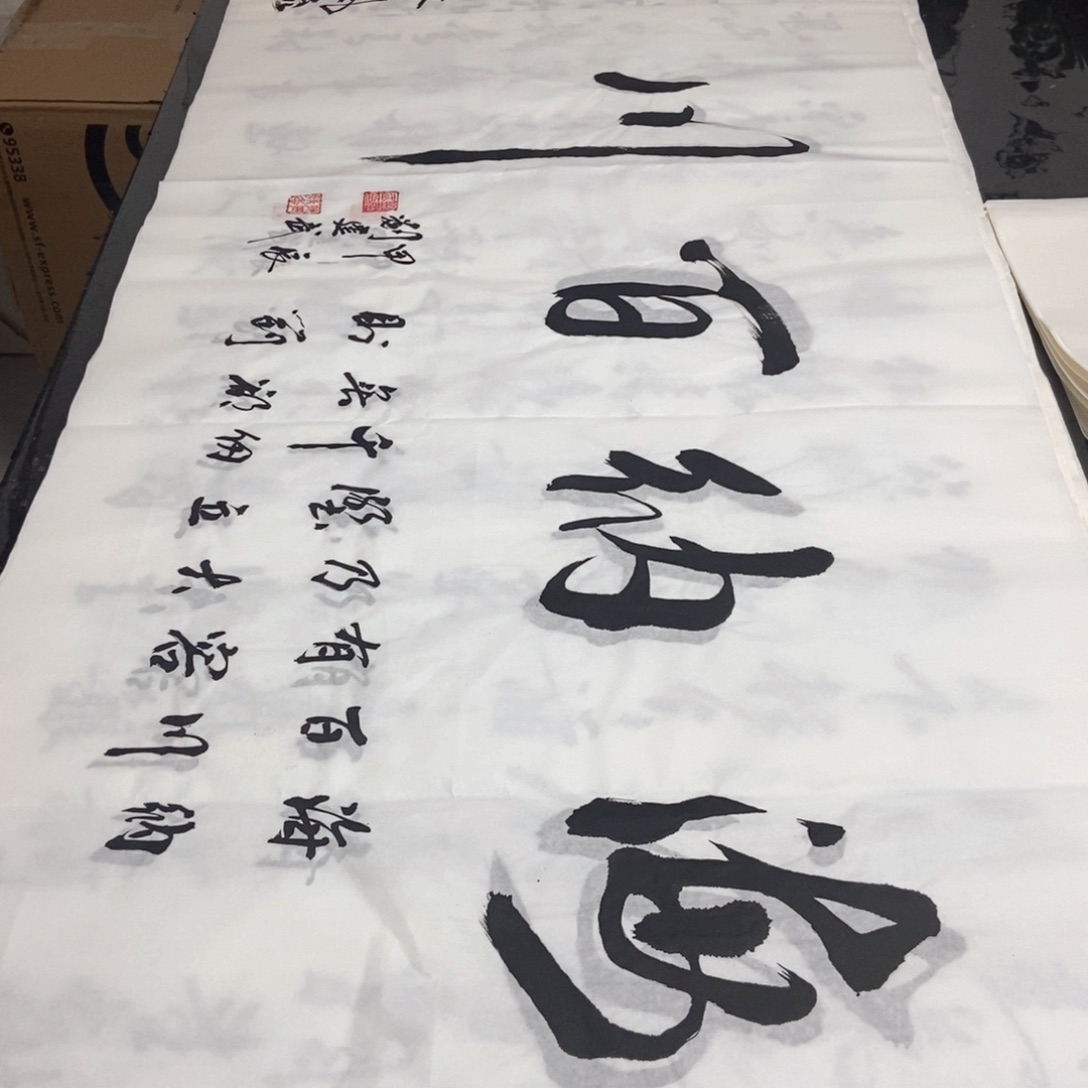 海纳百川
海纳
百川
有容
乃大
壁立
千仞
无欲
则刚
甲辰
95338
www.sf-express.com